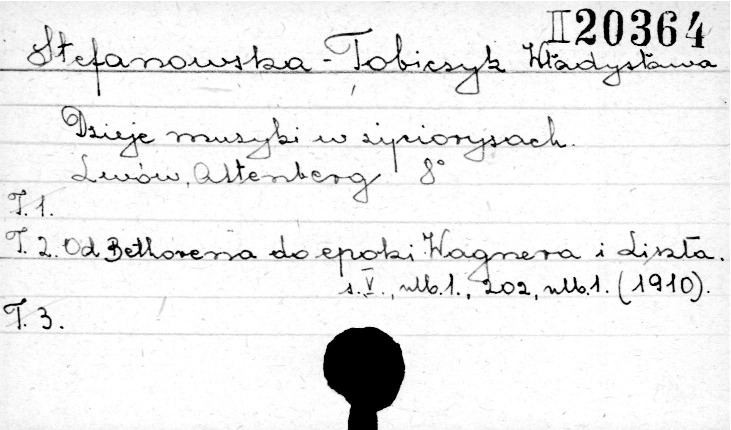 II 20364
Stefanowska-Tobiczyk Władysława
Dzieje muzyki w życiorysach.
Lwów, Altenberg 8°
T. 1.
T. 2. Od Bethovena do epoki Wagnera i Liszta.
s. V., nlb. 1., 202, nlb. 1. (1910).
T. 3.